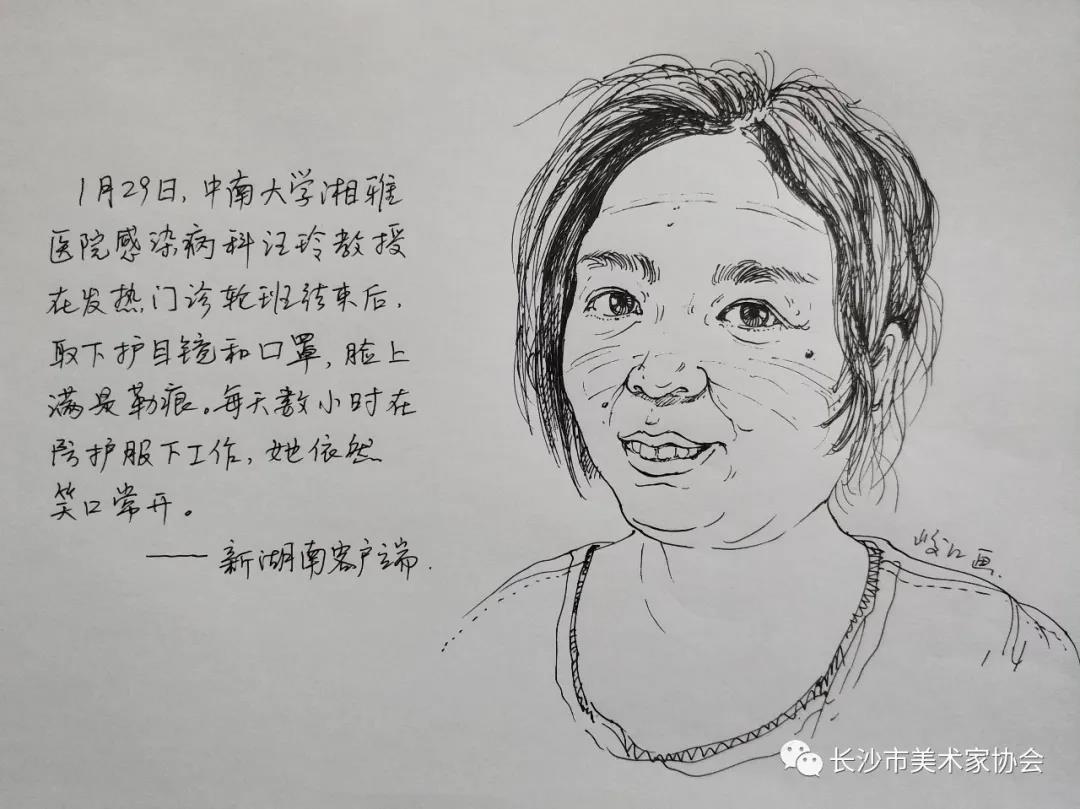 1月29日，中南大学湘雅
医院感染病科汪玲教授
在发热门诊轮班结束后，
取下护目镜和口罩，脸上
满是勒痕。每天数小时在
防护服下工作，她依然
笑口常开。
——新湖南客户端.
峻江画.
长沙市美术家协会